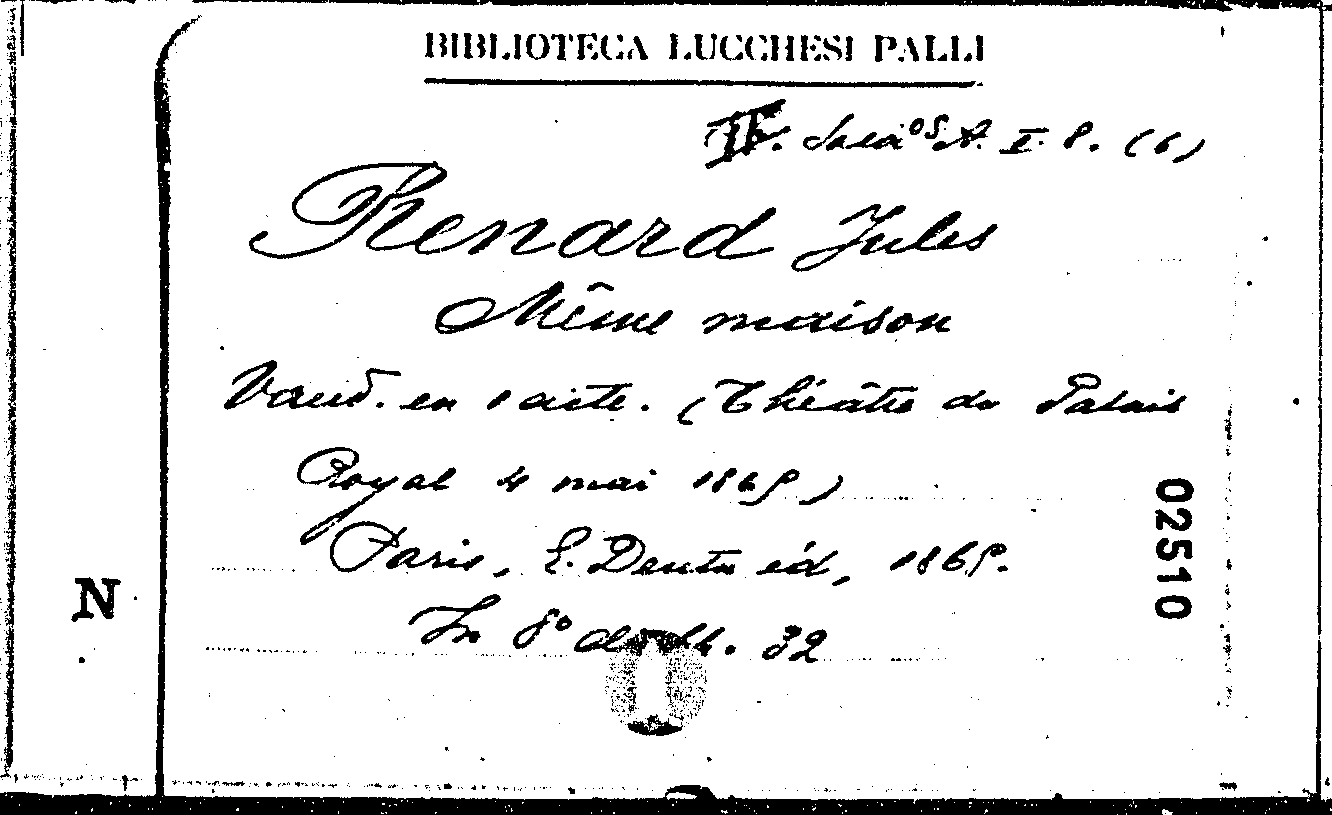 BIBLIOTECA LUCCHESI PALLI
A. I. 8. (6)
Renard Jules
Même maison
Vaud. en 1 acte. (Théâtre du Palais
Royal 4 mai 1865)
Paris, E. Dentu éd, 1865.
In 8º di pp. 32
N
02510